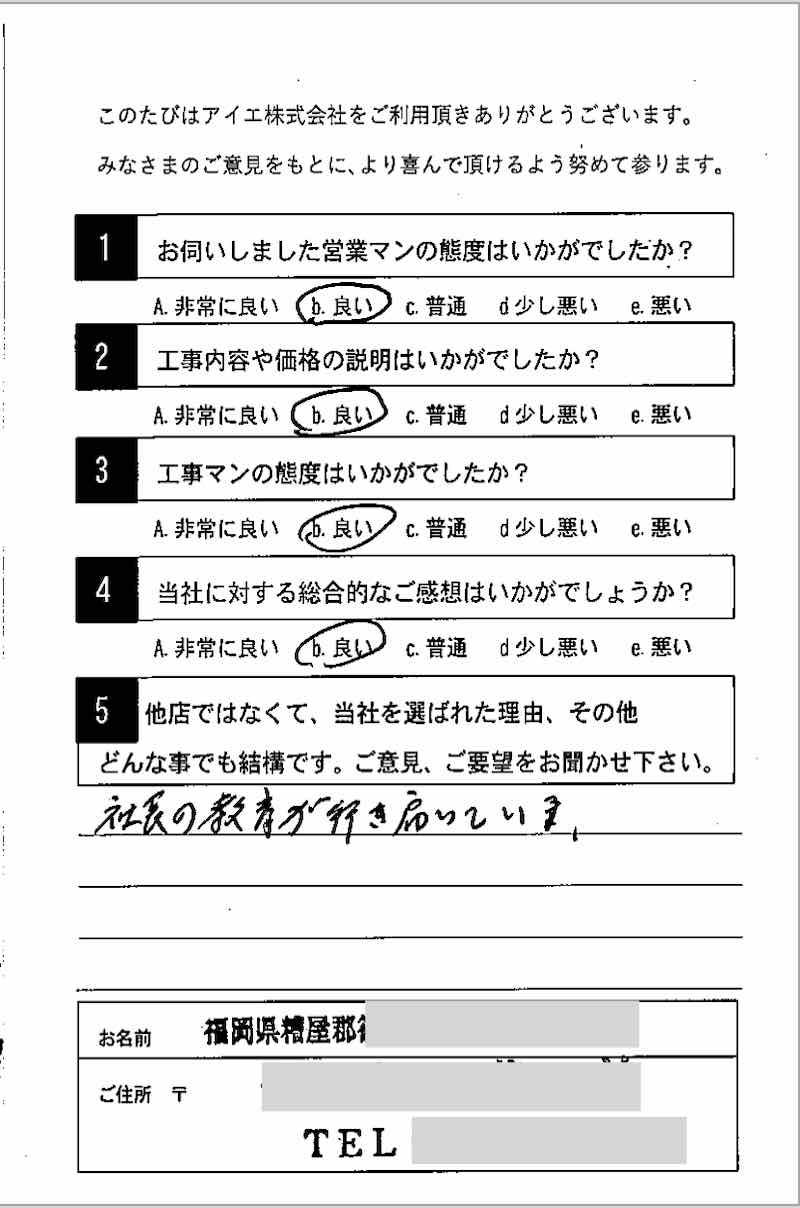 このたびはアイエ株式会社をご利用頂きありがとうございます。
みなさまのご意見をもとに、より喜んで頂けるよう努めて参ります。
1 お伺いしました営業マンの態度はいかがでしたか？
A. 非常に良い b. 良い c. 普通 d 少し悪い e. 悪い
2 工事内容や価格の説明はいかがでしたか？
A. 非常に良い b. 良い c. 普通 d 少し悪い e. 悪い
3 工事マンの態度はいかがでしたか？
A. 非常に良い b. 良い c. 普通 d 少し悪い e. 悪い
4 当社に対する総合的なご感想はいかがでしょうか？
A. 非常に良い b. 良い c. 普通 d 少し悪い e. 悪い
5 他店ではなくて、当社を選ばれた理由、その他
どんな事でも結構です。ご意見、ご要望をお聞かせ下さい。
社長の教育が行き届いています,
お名前 福岡県糟屋郡
ご住所 〒
TEL